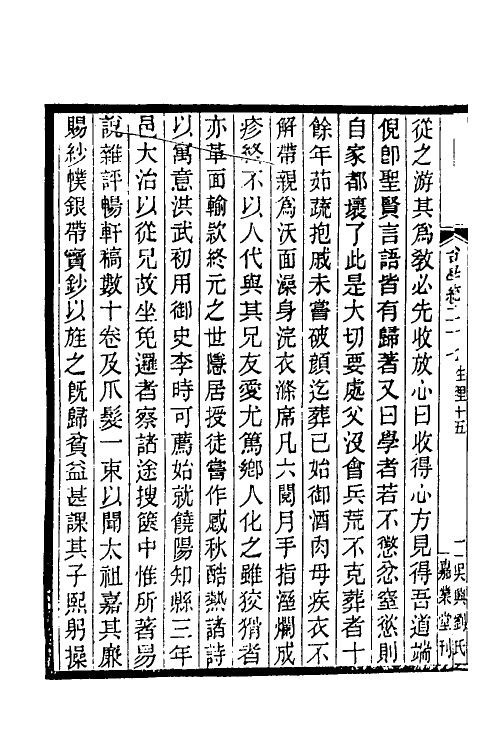 從之游其為教必先收放心曰收得心方見得吾道端
倪卽聖賢言語皆有歸著又曰學者若不懲忿窒慾則
自家都壞了此是大切要處父沒會兵荒不克葬者十
餘年茹蔬抱戚未嘗破顏迄葬已始御酒肉母疾衣不
解帶親為沃面澡身浣衣滌席凡六閱月手指溼爛成
疹終不以人代與其兄友愛尤篤鄉人化之雖狡猾者
亦革面輸款終元之世隱居授徒嘗作感秋酷熱諸詩
以寓意洪武初用御史李時可薦始就饒陽知縣三年
邑大治以從兄故坐免邏者察諸途搜篋中惟所著易
說雜評暢軒稿數十卷及爪髮一束以聞太祖嘉其廉
賜紗幞銀帶寶鈔以旌之旣歸貧益甚課其子熙躬操
生壟十五
吳興劉氏
嘉業堂刊